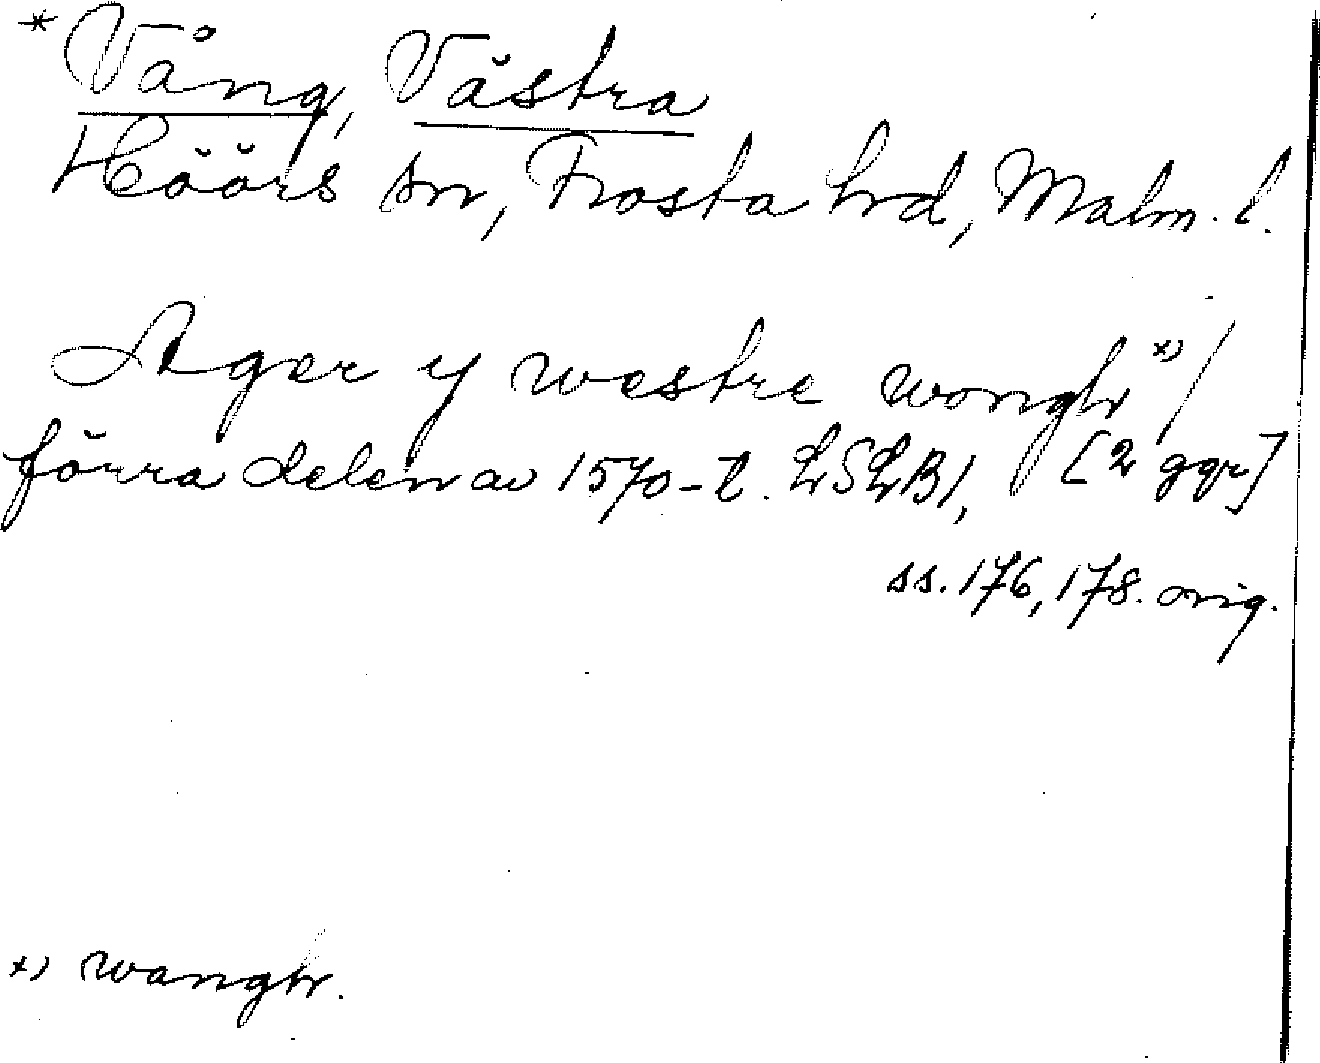 * Vång, Västra
Höörs sn, Frosta hrd, Malm. l.
Ager y westre wongh x) /
förra delen av 1570-t. LSLB 1, [2 ggr]
ss. 176, 178. orig.
x) wangh.